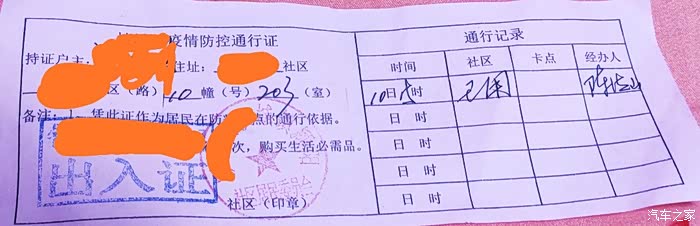 疫情防控通行证
持证户主: 住址: 社区
区(路) 10 幢(号) 203 (室)
备注: 1、凭此证作为居民在防 点的通行依据。
次，购买生活必需品。
出入证
社区(印章)
通行记录
时间 社区 卡点 经办人
10日 时 已用
日 时
日 时
日 时
日 时
汽车之家